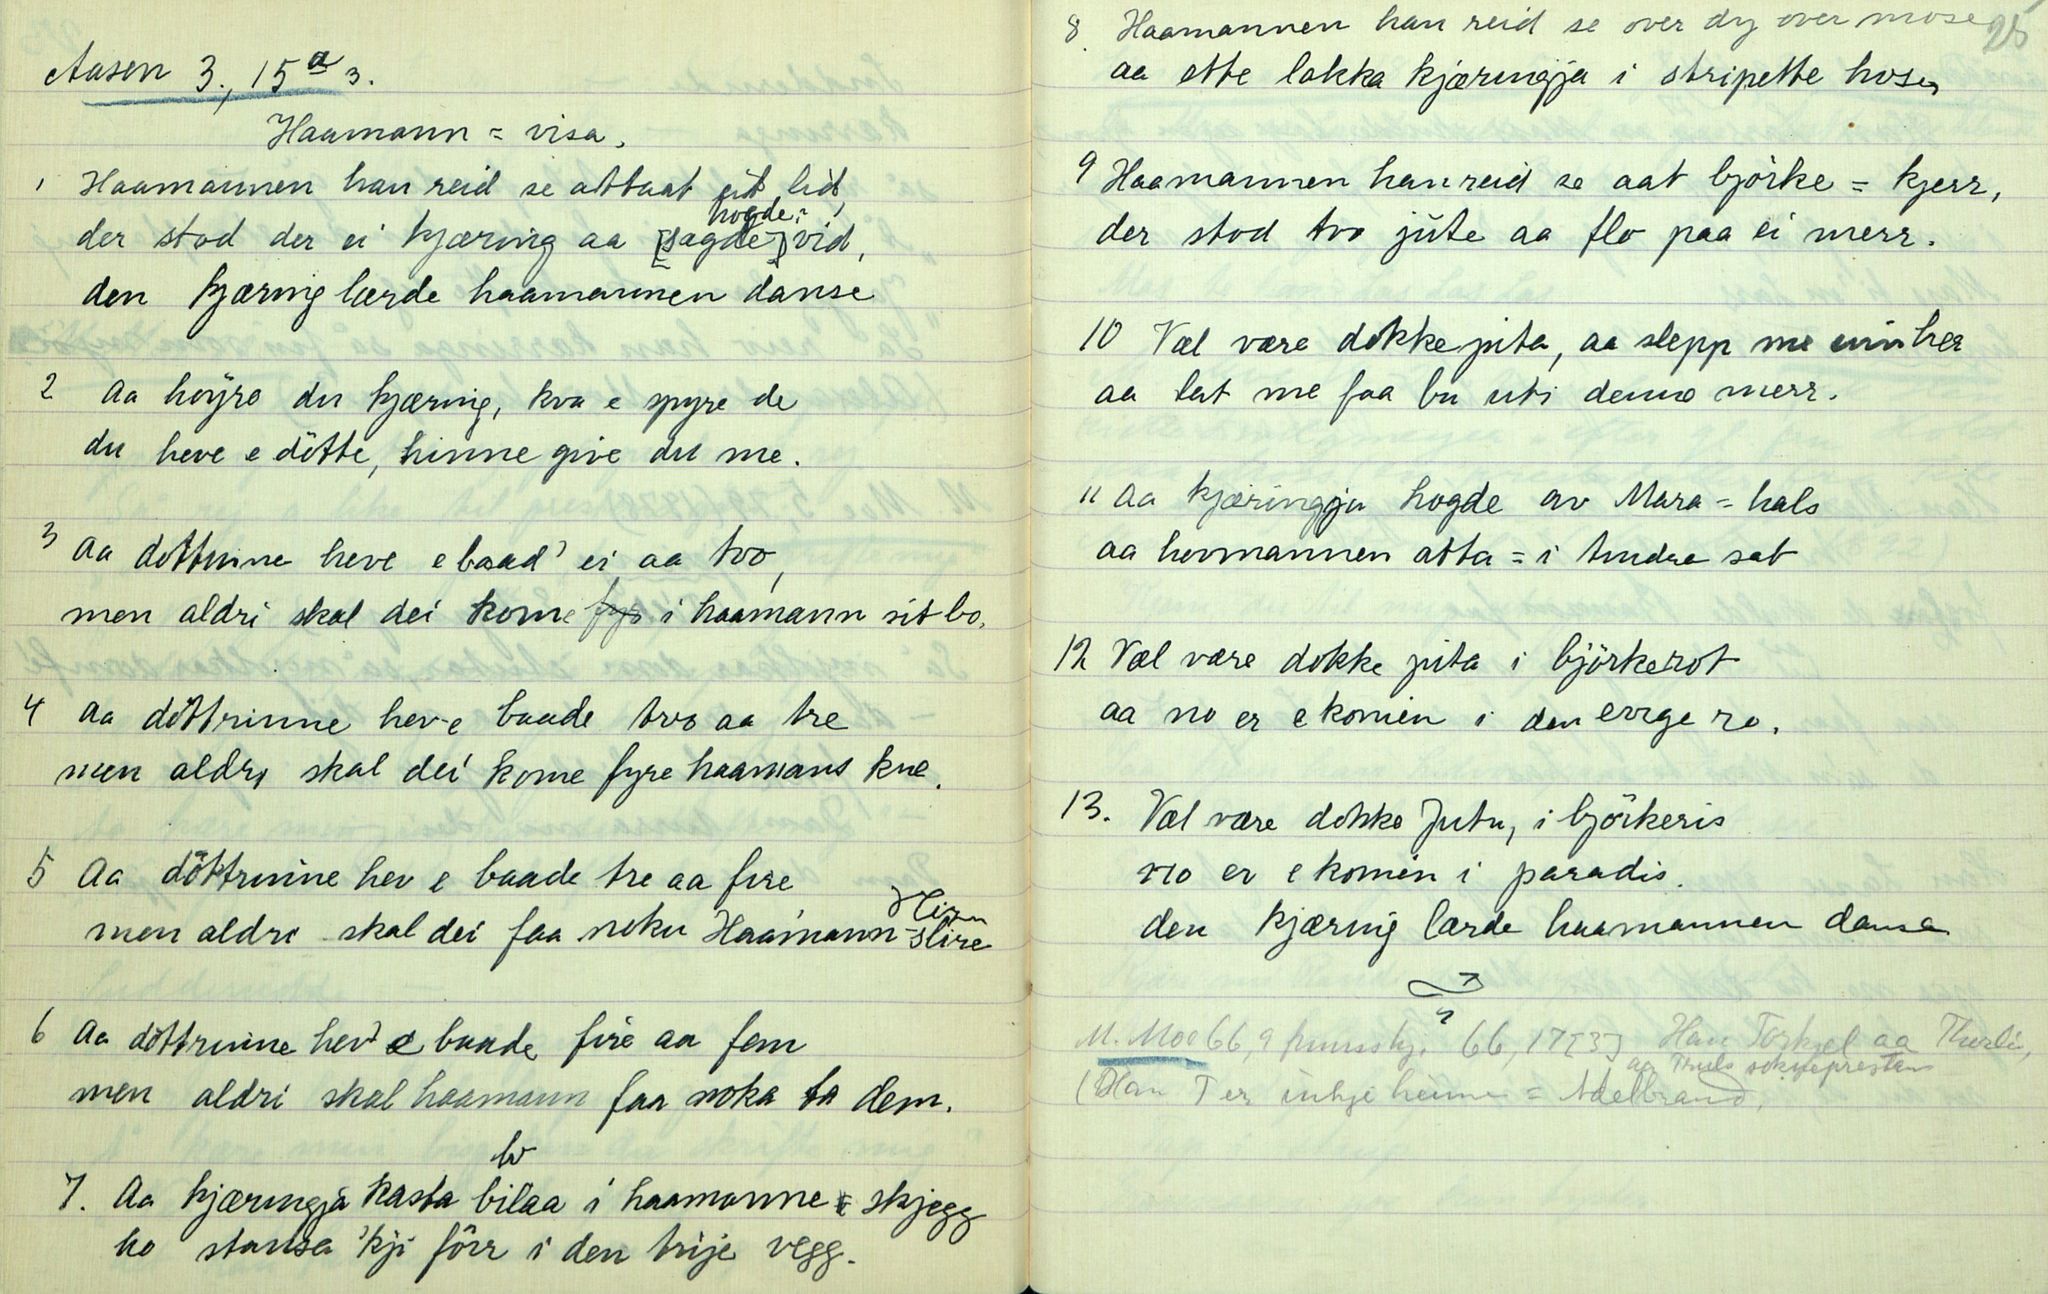 Aasen 3., 15 a 3.
Haamann = visa.
1 Haamannen han reid se attaat eit lid,
hogde
der stod der ei kjæring aa [sagde] vid,
den kjæring lærde haamannen danse
2 Aa höyre du kjæring, kva e spyre de
du heve e dötte, hinne give du me.
3 Aa döttrinne heve e baad' ei aa tvo,
men aldri skal dei kome fyre i haamann sit bo.
4 Aa döttrinne hev e baade tvo aa tre
men aldri skal dei kome fyre haamans kne.
5 Aa döttrinne hev e baade tre aa fire
men aldri skal dei faa noku Haamann-slire
6 Aa döttrinne hev e baade fire aa fem
men aldri skal haamann faa noka ta dem.
7. Aa kjæringja kasta bilaa i haamanne = skjegg
ho stansa 'kji förr i den trije vegg.
25
8. Haamannen han reid se over dy over mose
aa ette lakka kjæringja i stripette hose
9 Haamannen han reid se aat björke = kjerr,
der stod tvo jute aa flo paa ei merr.
10 Væl være dokke juta, aa slepp me inn her
aa lat me faa bu uti denne merr.
11 Aa kjæringja hogde av Mara = hals
aa hovmannen atta = i tindra sat
12 Væl være dokke juta i björkerot
aa no er e komen i den evige ro.
13. Væl være dokke Juta, i björkeris
no er e komen i paradis.
den kjæring lærde haamannen danse
M. Moe 66, 9 66, 17 [3] Han Torkjel aa
aa Truls
(Han T er inkje heime = Adelbrand.